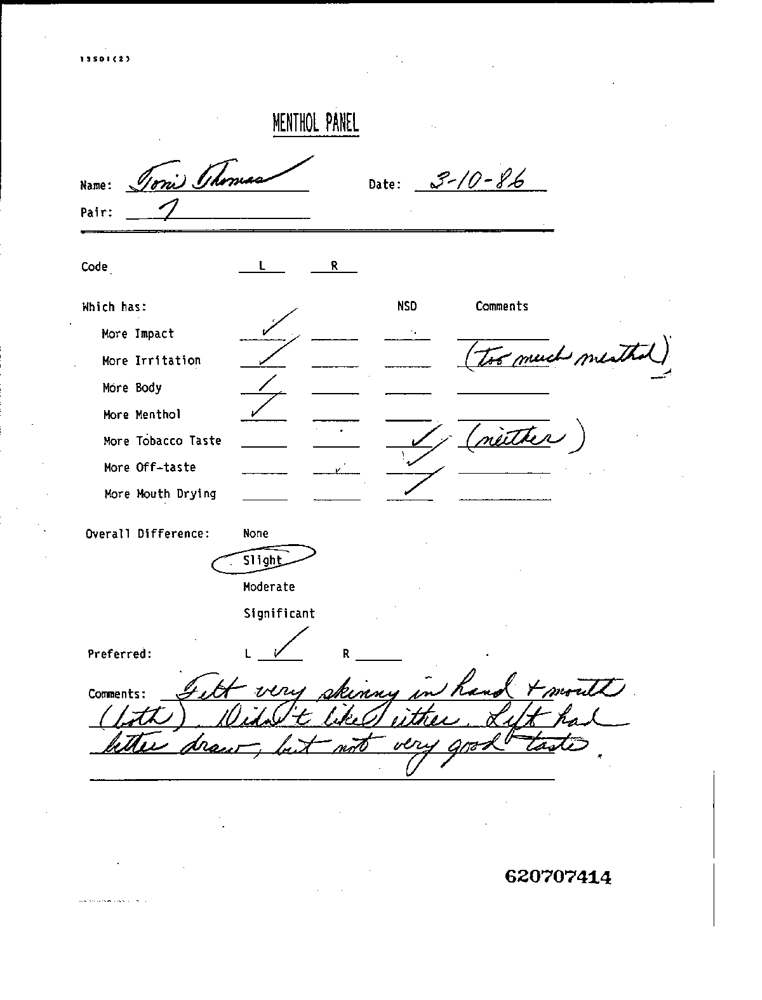 13501(2)
MENTHOL PANEL
Name: Toni Thomas Date: 3-10-86
Pair: 7
Code L R
Which has: NSD Comments
More Impact ✓
More Irritation ✓ (too much menthol)
More Body ✓
More Menthol ✓
More Tobacco Taste ✓ (neither)
More Off-taste ✓
More Mouth Drying ✓
Overall Difference: None
Slight
Moderate
Significant
Preferred: L ✓ R
Comments: Felt very skinny in hand + mouth
(both). Didn't like either. Left had
better draw, but not very good taste.
620707414